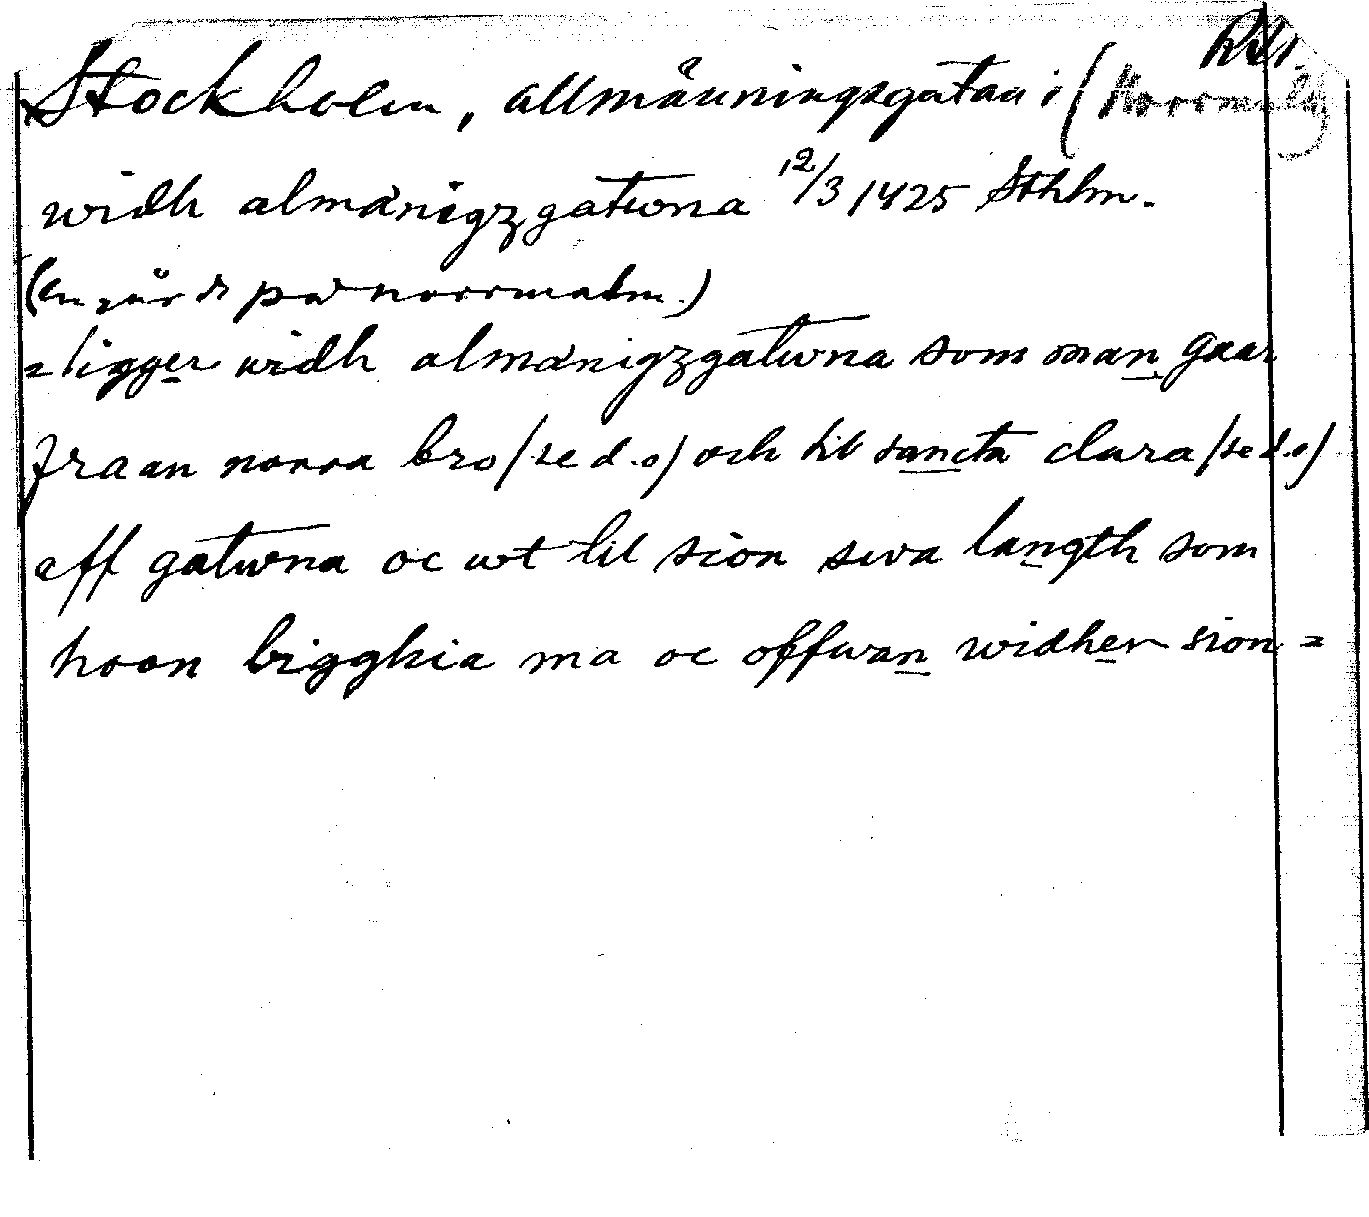 Stockholm, allmänningsgatan i (Norrmalm)
widh almänigzgatwna 12/3 1425 Sthlm.
(en gård på norrmalm.)
= ligger widh almänigzgatwna som man gaar
fraan norra bro (se d.o) och til sancta clara (se d.o)
aff gatwna oc wt til sion swa langth som
hoon bigghia ma oc offwan widher sion =